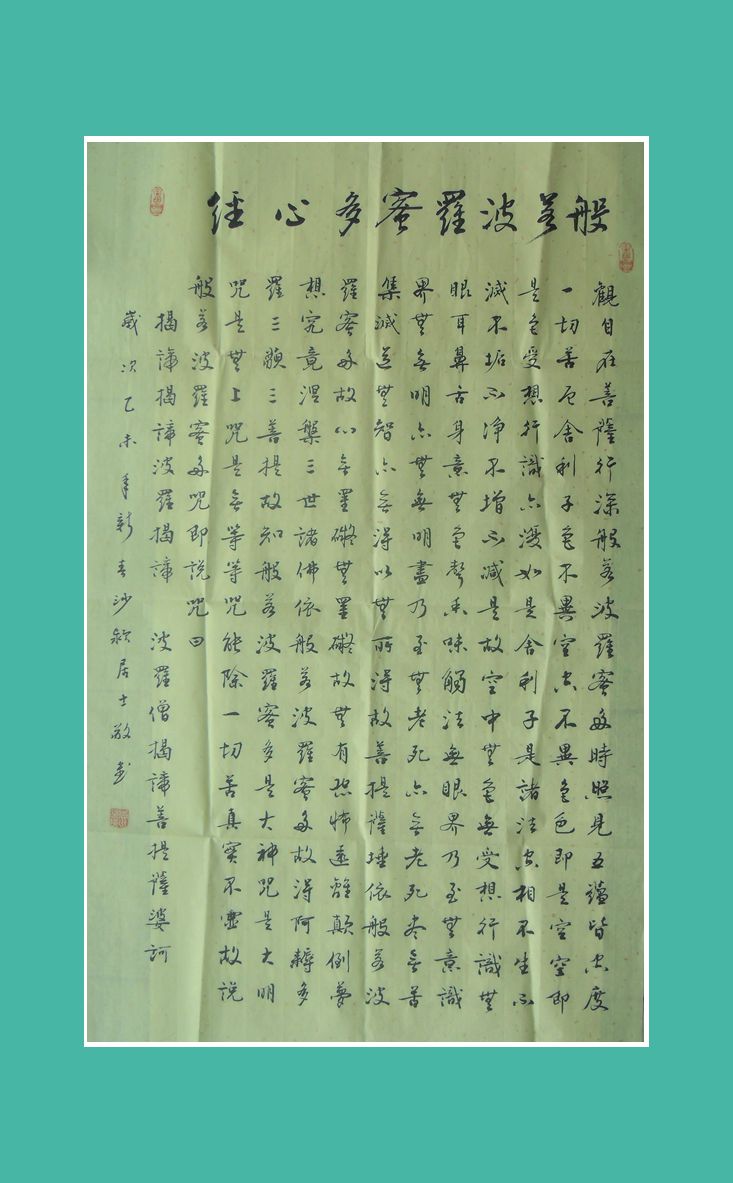 般若波羅蜜多心經
觀自在菩薩行深般若波羅蜜多時照見五蘊皆空度
一切苦厄舍利子色不異空空不異色色即是空空即
是色受想行識亦復如是舍利子是諸法空相不生不
滅不垢不淨不增不減是故空中無色無受想行識無
眼耳鼻舌身意無色聲香味觸法無眼界乃至無意識
界無無明亦無無明盡乃至無老死亦無老死盡無苦
集滅道無智亦無得以無所得故菩提薩埵依般若波
羅蜜多故心無罣礙無罣礙故無有恐怖遠離顛倒夢
想究竟涅槃三世諸佛依般若波羅蜜多故得阿耨多
羅三藐三菩提故知般若波羅蜜多是大神咒是大明
咒是無上咒是無等等咒能除一切苦真實不虛故說
般若波羅蜜多咒即說咒曰
揭諦揭諦波羅揭諦 波羅僧揭諦菩提薩婆訶
歲次乙未年新春沙居士敬書